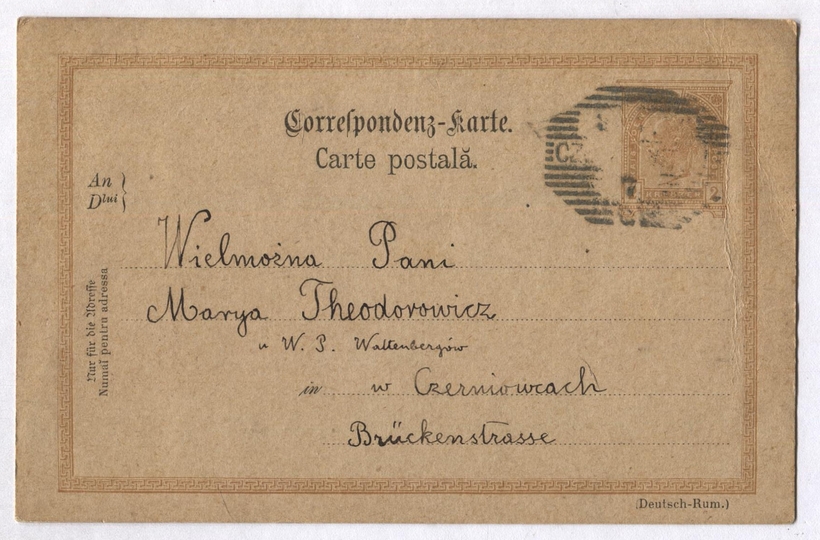 Correspondenz-Karte.
Carte postală.
An
Dlui
Wielmożna Pani
Marya Theodorowicz
u W. P. Waltenbergów
in w Czerniowcach
Brückenstrasse
Nur für die Adresse
Numai pentru adressa
CZ
7
2
(Deutsch-Rum.)